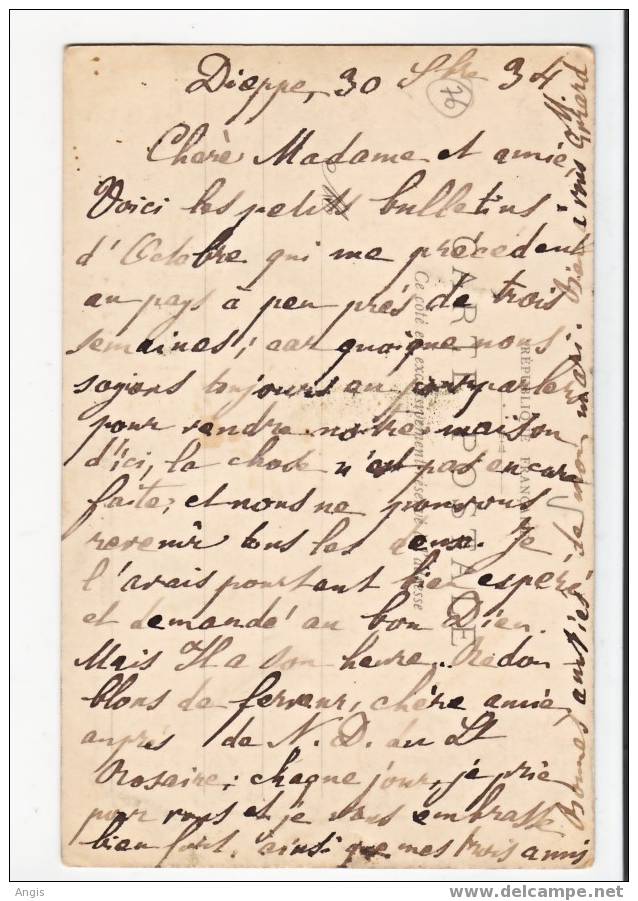 Dieppe, 30 Sbre 34
76
Chère Madame et amie
Voici les petits bulletins
d'Octobre qui me précèdent
au pays à peu près de trois
semaines; car quoique nous
soyons toujours en pourparlers
pour vendre notre maison
d'ici, la chose n'est pas encore
faite; et nous ne pouvons
revenir tous les deux. Je
l'avais pourtant bien espéré
et demandé au bon Dieu.
Mais Il a son heure. Redou
blons de ferveur, chère amie,
auprès de N. D. du St
Rosaire; chaque jour, je prie
pour vous et je vous embrasse
bien fort, ainsi que mes trois amis
Bonnes amitiés de mon mari. Bien à vous
RÉPUBLIQUE FRANÇAISE
CARTE POSTALE
Ce côté est exclusivement réservé à l'adresse
M
Angis
www.delcampe.net